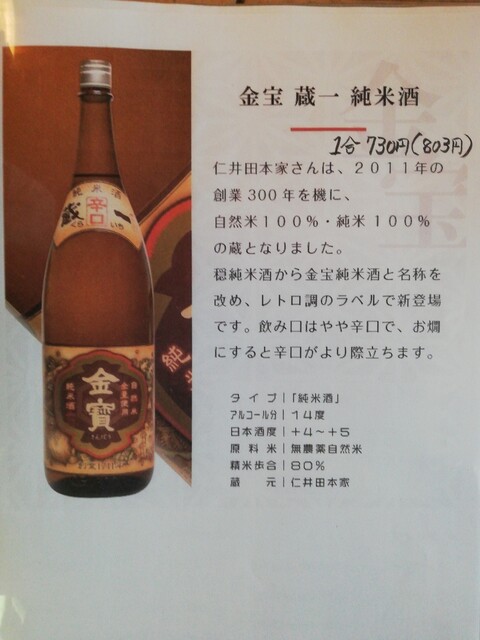 金宝 蔵一 純米酒
1合 730円(803円)
仁井田本家さんは、2011年の
創業300年を機に、
自然米100%・純米100%
の蔵となりました。
穏純米酒から金宝純米酒と名称を
改め、レトロ調のラベルで新登場
です。飲み口はやや辛口で、お燗
にすると辛口がより際立ちます。
タイプ|「純米酒」
アルコール分|14度
日本酒度|+4~+5
原料米|無農薬自然米
精米歩合|80%
蔵元|仁井田本家
純米酒
蔵 辛口 一
くら いち
自然米
金寶
純米酒
きんぽう
純米